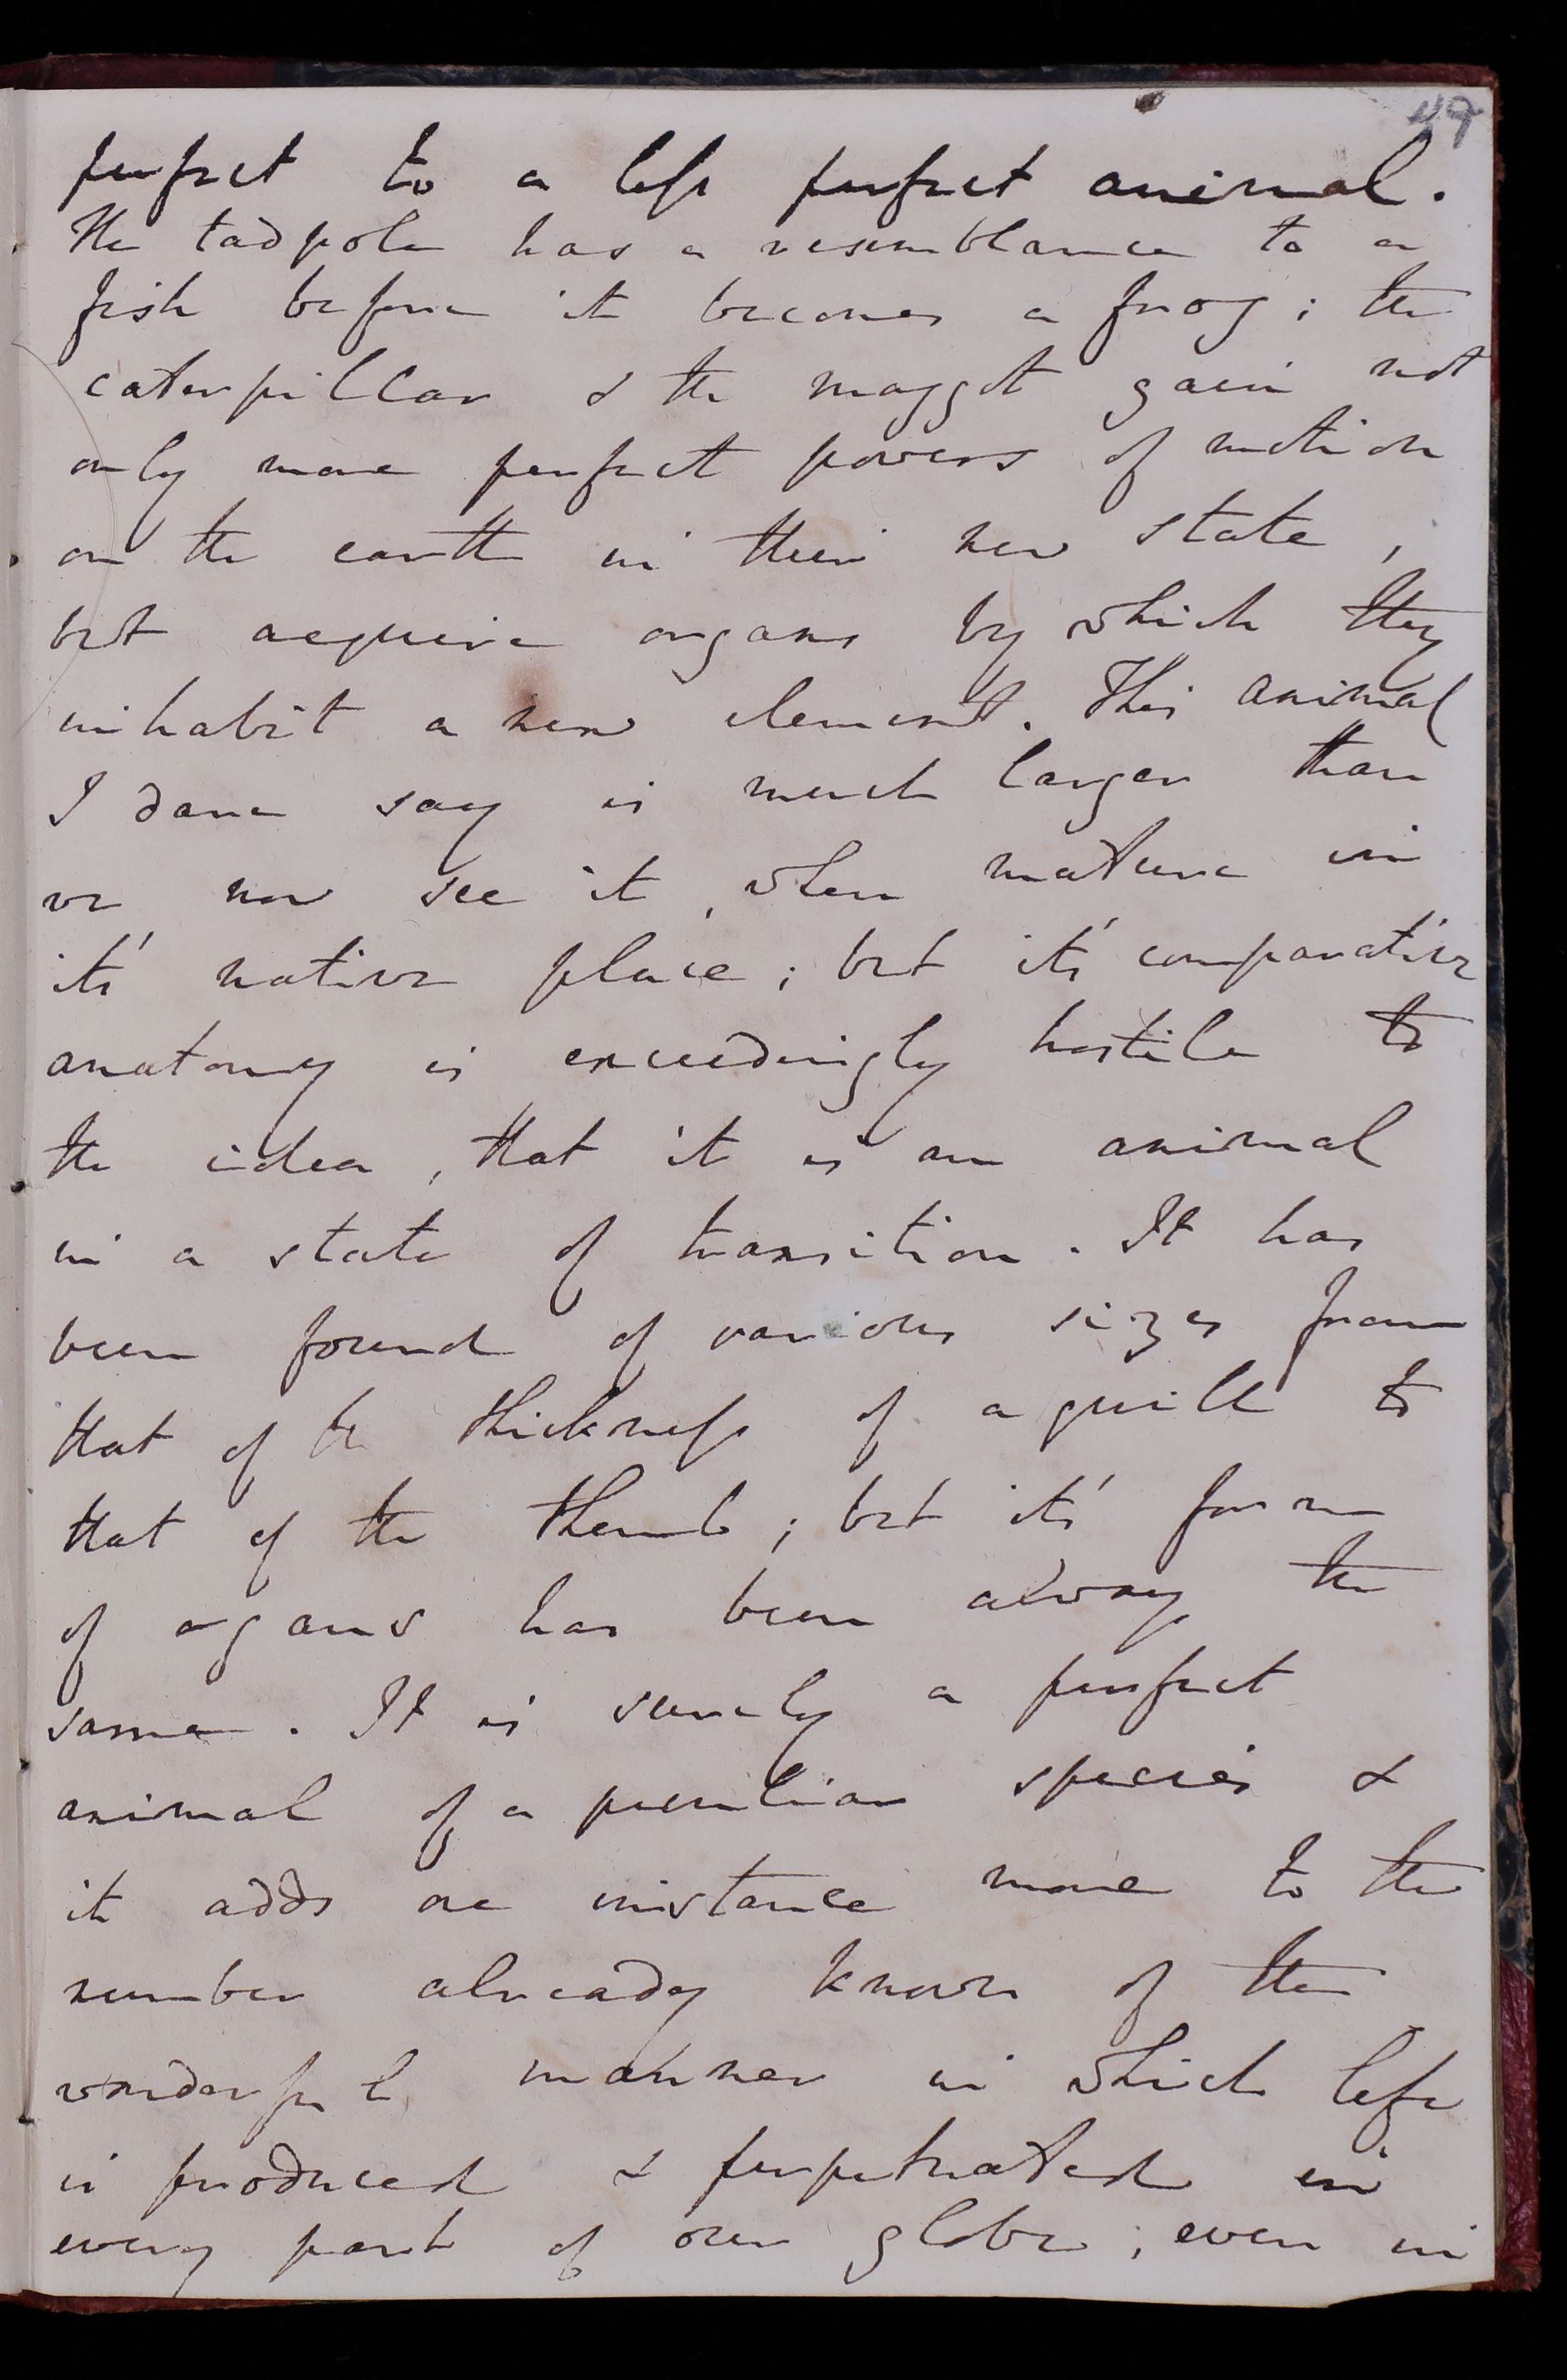 47
perfect to a less perfect animal.
The tadpole has a resemblance to a
fish before it becomes a frog; the
caterpillar & the maggot gain not
only more perfect powers of motion
on the earth in their new state,
but acquire organs by which they
inhabit a new element. This animal
I dare say is much larger than
we now see it, when mature in
it's native place; but it's comparative
anatomy is exceedingly hostile to
the idea, that it is an animal
in a state of transition. It has
been found of various sizes from
that of the thickness of a quill to
that of the thumb; but it's form
of organs has been always the
same. It is surely a perfect
animal of a peculiar species &
it adds one instance more to the
number already known of the
wonderful manner in which life
is produced & perpetrated in
every part of our globe; even in